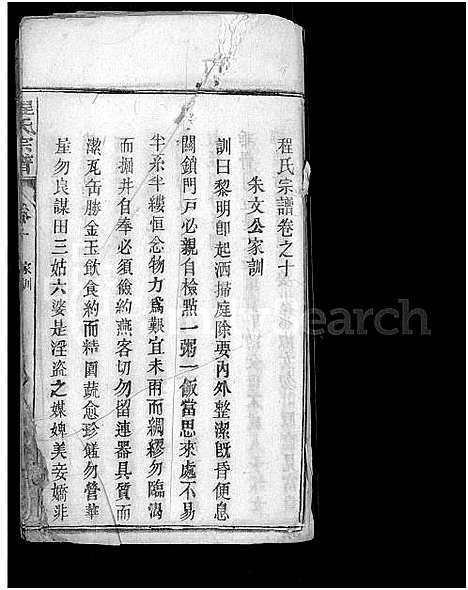 程氏宗譜卷之十
朱文公家訓
訓曰黎明卽起洒掃庭除要內外整潔旣昏便息
關鎖門戸必親自檢點一粥一飯當思來處不易
半糸半縷恒念物力爲艱宜未雨而綢繆勿臨渴
而掘井自奉必須儉約燕客切勿留連器具質而
潔瓦缶勝金玉飮食約而精園蔬愈珍饈勿營華
屋勿良謀田三姑六婆是淫盜之媒婢美妾嬌非
程氏宗譜
家訓